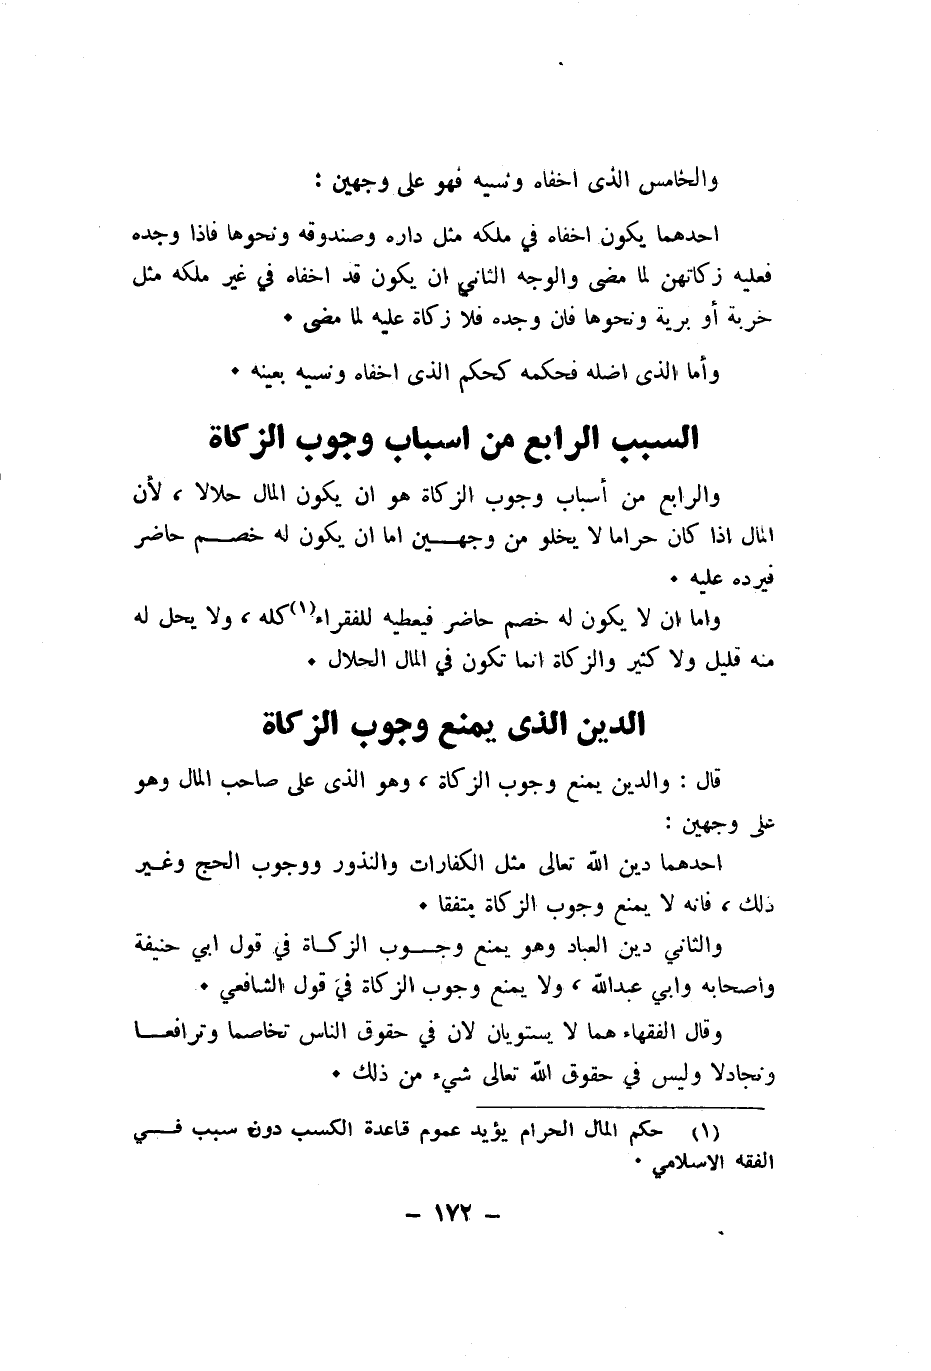 والخامس الذى اخفاه ونسيه فهو على وجهين :
احدهما يكون اخفاه في ملكه مثل داره وصندوقه ونحوها فاذا وجده
فعليه زكاتهن لما مضى والوجه الثاني ان يكون قد اخفاه في غير ملكه مثل
خربة أو برية ونحوها فان وجده فلا زكاة عليه لما مضى ٠
وأما الذى اضله فحكمه كحكم الذى اخفاه ونسيه بعينه ٠
السبب الرابع من اسباب وجوب الزكاة
والرابع من أسباب وجوب الزكاة هو ان يكون المال حلالا ، لأن
المال اذا كان حراما لا يخلو من وجهـــين اما ان يكون له خصـــم حاضر
فيرده عليه ٠
واما ان لا يكون له خصم حاضر فيعطيه للفقراء(١) كله ، ولا يحل له
منه قليل ولا كثير والزكاة انما تكون في المال الحلال ٠
الدين الذى يمنع وجوب الزكاة
قال : والدين يمنع وجوب الزكاة ، وهو الذى على صاحب المال وهو
على وجهين :
احدهما دين الله تعالى مثل الكفارات والنذور ووجوب الحج وغـير
ذلك ، فانه لا يمنع وجوب الزكاة متفقا ٠
والثاني دين العباد وهو يمنع وجـــوب الزكـاة في قول ابي حنيفة
واصحابه وابي عبدالله ، ولا يمنع وجوب الزكاة في قول الشافعي ٠
وقال الفقهاء هما لا يستويان لان في حقوق الناس تخاصما وترافعـــا
وتجادلا وليس في حقوق الله تعالى شيء من ذلك ٠
(١) حكم المال الحرام يؤيد عموم قاعدة الكسب دون سبب فـــي
الفقه الاسلامي ٠
– ١٧٢ –